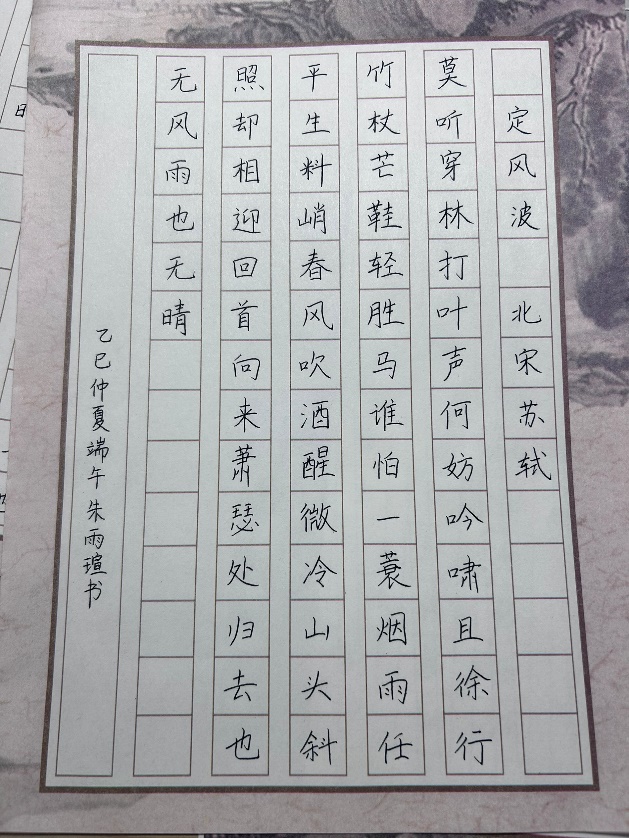 定风波 北宋苏轼
莫听穿林打叶声何妨吟啸且徐行
竹杖芒鞋轻胜马谁怕一蓑烟雨任
平生料峭春风吹酒醒微冷山头斜
照却相迎回首向来萧瑟处归去也
无风雨也无晴
乙巳仲夏端午朱雨瑄书